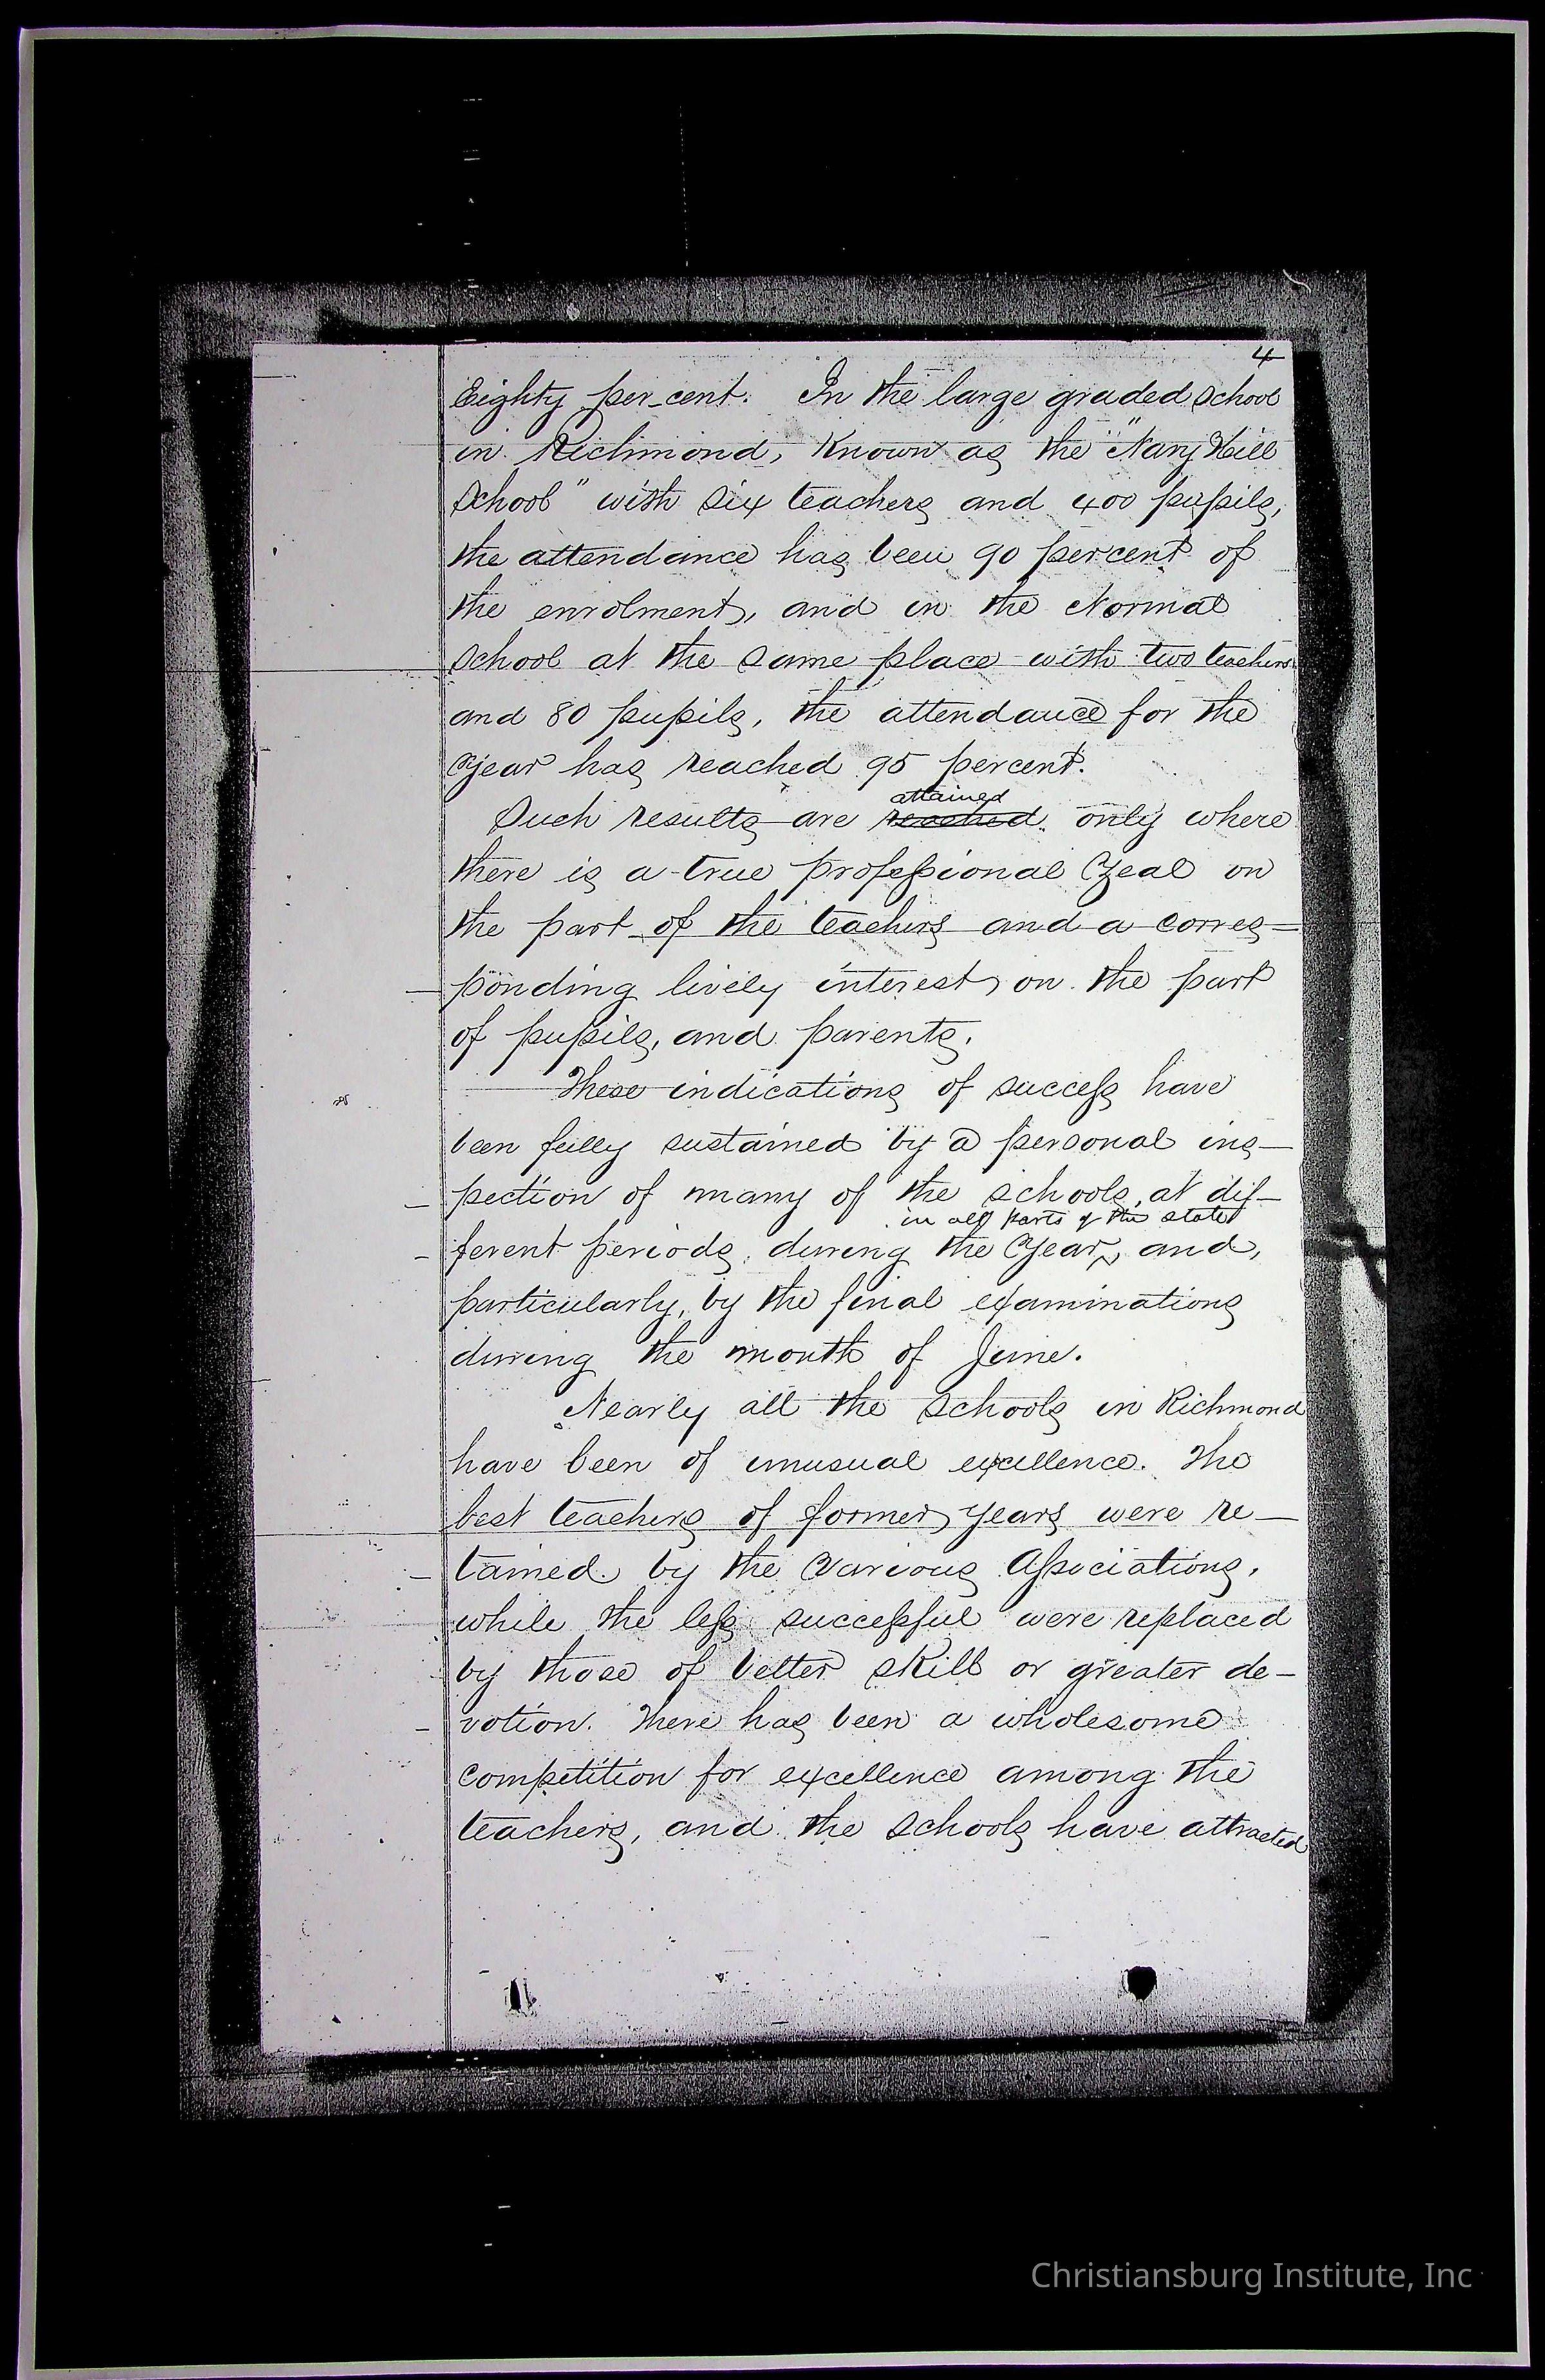 4
Eighty per-cent. In the large graded school
in Richmond, known as the "Navy Hill
School" with six teachers and 400 pupils,
the attendance has been 90 percent of
the enrolment, and in the Normal
School at the same place with two teachers
and 80 pupils, the attendance for the
year has reached 95 percent.
attained
Such results are reached only where
there is a true professional zeal on
the part of the teachers and a corres=
ponding lively interest on the part
of pupils, and parents.
These indications of success have
been fully sustained by a personal ins-
pection of many of the schools, at dif-
in all parts of the state
ferent periods, during the year, and,
particularly, by the final examinations
during the month of June.
Nearly all the schools in Richmond
have been of unusual excellence. The
best teachers of former years were re-
tained by the various Associations,
while the less successful were replaced
by those of better skill or greater de-
votion. There has been a wholesome
competition for excellence among the
teachers, and the schools have attracted
Christiansburg Institute, Inc